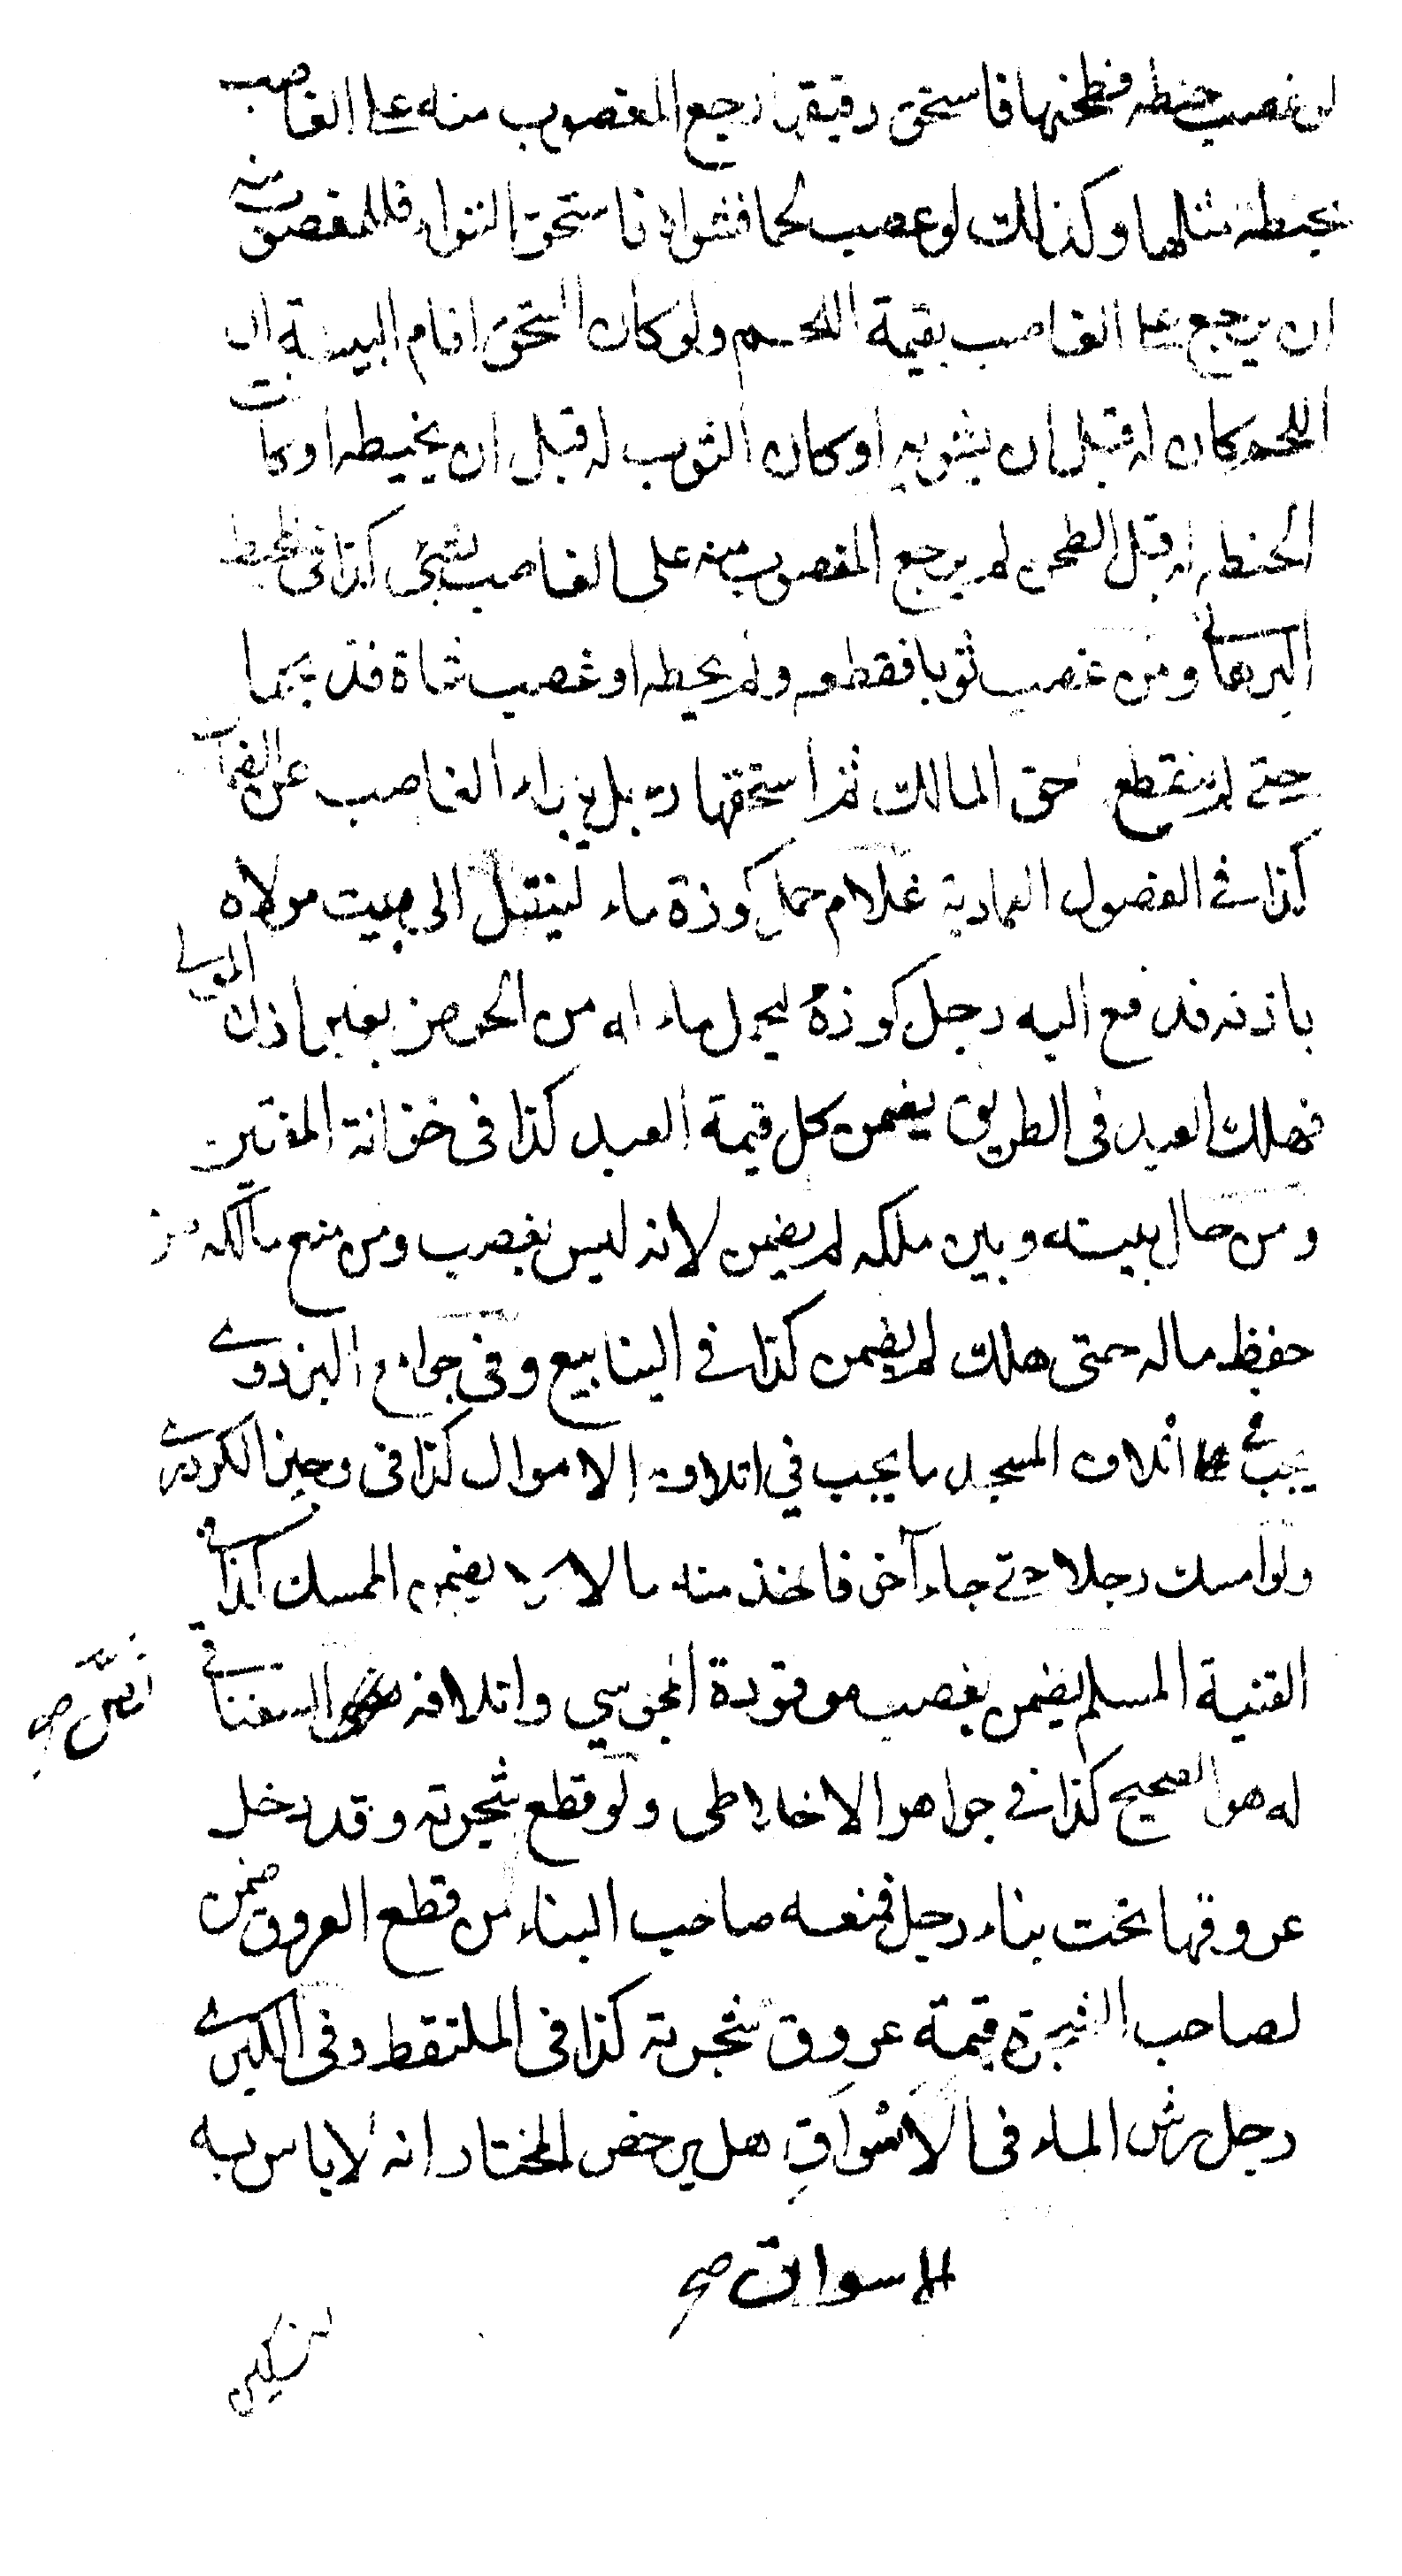 لو غصب حنطه فطحنها فاستحق دقيقها رجع المغصوب منه على الغاصب
بحنطة مثلها وكذلك لو غصب لحما فشواه فاستحق الشواء فللمغصوب منه
ان يرجع على الغاصب بقيمة اللحم ولو كان المستحق اقام البينة ان
اللحم كان له قبل ان يشويه او كان الثوب له قبل ان يخيطه او كانت
الحنطه له قبل الطحن لم يرجع المغصوب منه على الغاصب بشئ كذا فى المحيط
البرهانى ومن غصب ثوبا فقطعه ولم يخطه او غصب شاة فذبحها
حتى لم ينقطع حق المالك ثم استحقها رجل يبراء الغاصب عن الضمان
كذا فى الفصول العمادية غلام حمل كوزة ماء لينقل الى بيت مولاه
باذنه فدفع اليه رجل كوزه ليحمل ماء له من الحوض بغير اذن المولى
فهلك العبد فى الطريق يضمن كل قيمة العبد كذا فى خزانة المفتين
ومن حال بينه وبين ملكه لم يضمن لانه ليس بغصب ومن منع مالكه من
حفظ ماله حتى هلك لم يضمن كذا فى الينابيع وفى جوامع البزدوى
يجب فى اتلاف المسجد ما يجب فى اتلاف الاموال كذا فى وجيز الكردرى
ولو امسك رجلا حتى جاء آخر فاخذ منه مالا لا يضمن الممسك كذا فى
القنية المسلم يضمن بغصب موقوذة المجوسي واتلافه السغناقى
له هو الصحيح كذا فى جواهر الاخلاطى ولو قطع شجرته وقد دخل
عروقها تحت بناء رجل فمنعه صاحب البناء من قطع العروق ضمن
لصاحب الشجرة قيمة عروق شجرته كذا فى الملتقط وفى الكبرى
رجل رش الماء فى الاسواق هل يرخص المختار انه لا باس به
الاسواق صح